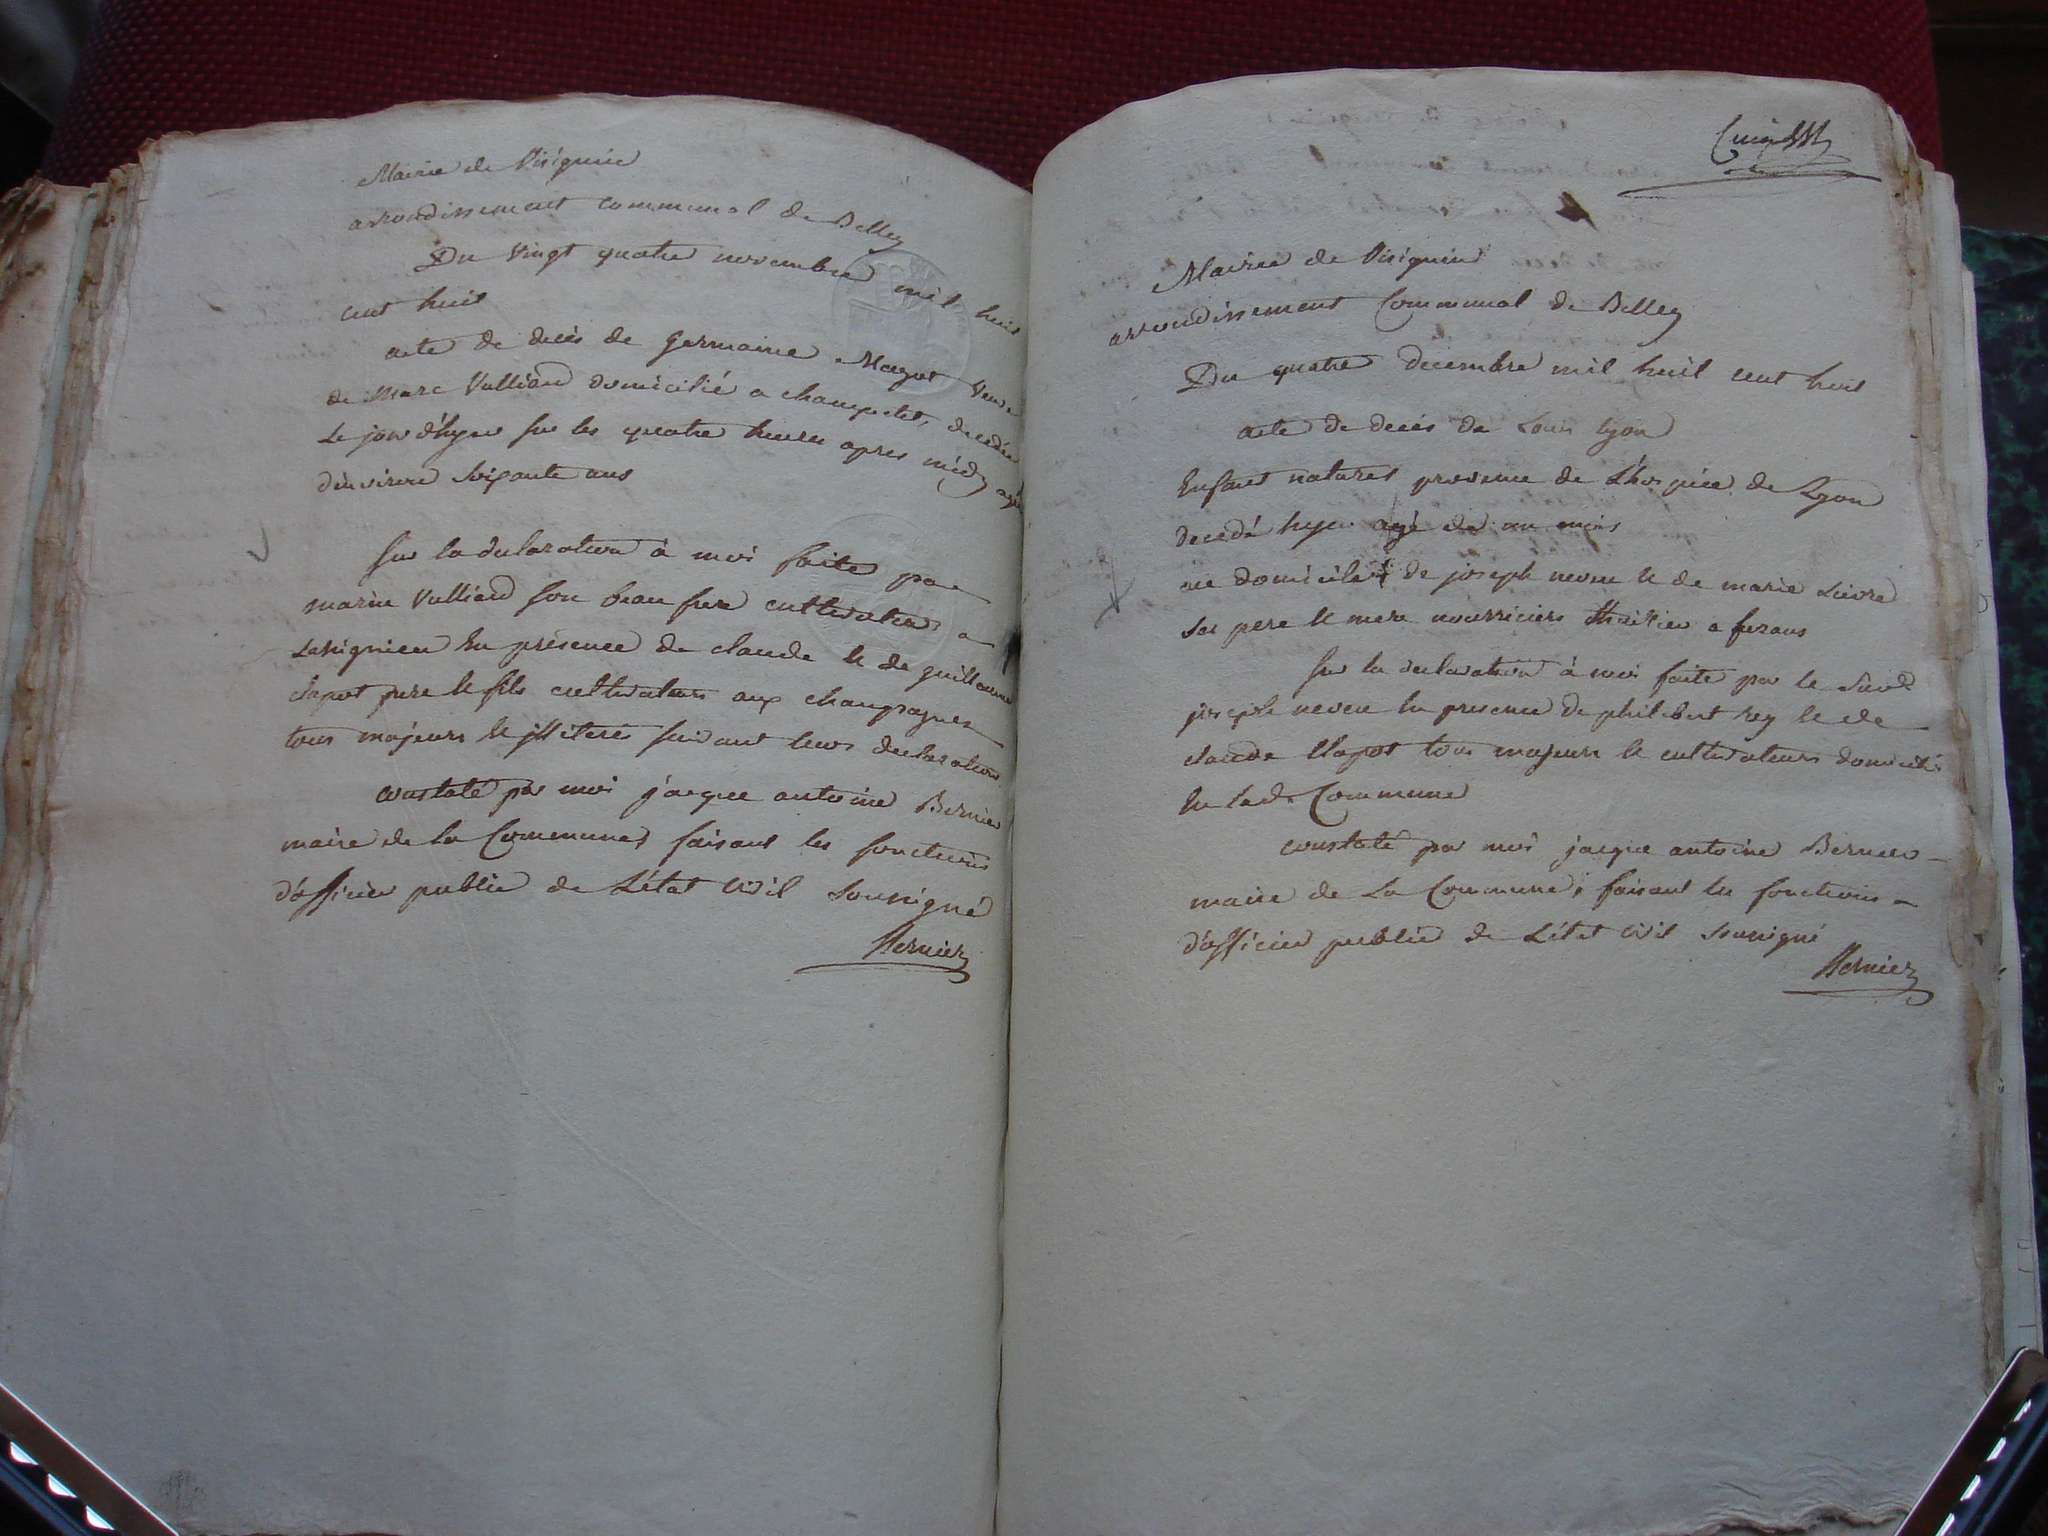 Mairie de Virignin
arrondissement communal de Belley
Du vingt quatre novembre mil huit
cent huit
acte de decès de germaine veuve
de Marc Vulliard domicilié a champetel, decedée
Le jour d'hyer sur les quatre heures apres midy agée
d'environ soixante ans
sur la declaration à moi faite par
marin Vulliard son beau frere cultivateur a
en présence de claude et de guillaume
clapot pere et fils cultivateurs aux champagnes
tous majeurs et suivant leurs declaration
constaté par moi jacque antoine Bernier
maire de la Commune faisant les fonctions
d'officier public de L'état civil soussigné
Bernier
Mairie de Virignin
arrondissement Communal de Belley
Du quatre decembre mil huit cent huit
acte de decès de Louis Lyon
Enfant naturel provenu de L'hospice de Lyon
decedé hyer agé de un mois
au domicile de joseph neveu et de marie Lievre
ses pere et mere nourriciers a furans
sur la declaration à moi faite par le
joseph neveu en presence de philibert rey et de
claude Clapot tous majeurs et cultivateurs domiciliés
en Commune
constaté par moi jacque antoine Bernier
maire de La Commune, faisant les fonctions
d'officier public de L'état civil soussigné
Bernier